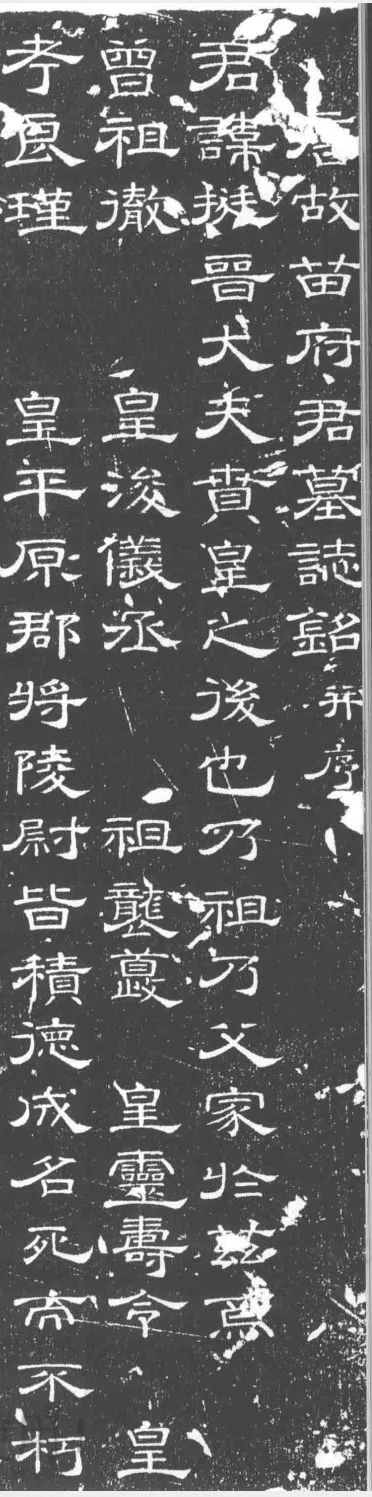 唐故苗府君墓誌銘并序
君諱挺晉大夫賁皇之後也乃祖乃父家於茲焉
曾祖徹 皇浚儀丞 祖襲夔 皇靈壽令 皇
考良瑾 皇平原郡將陵尉皆積德成名死而不朽